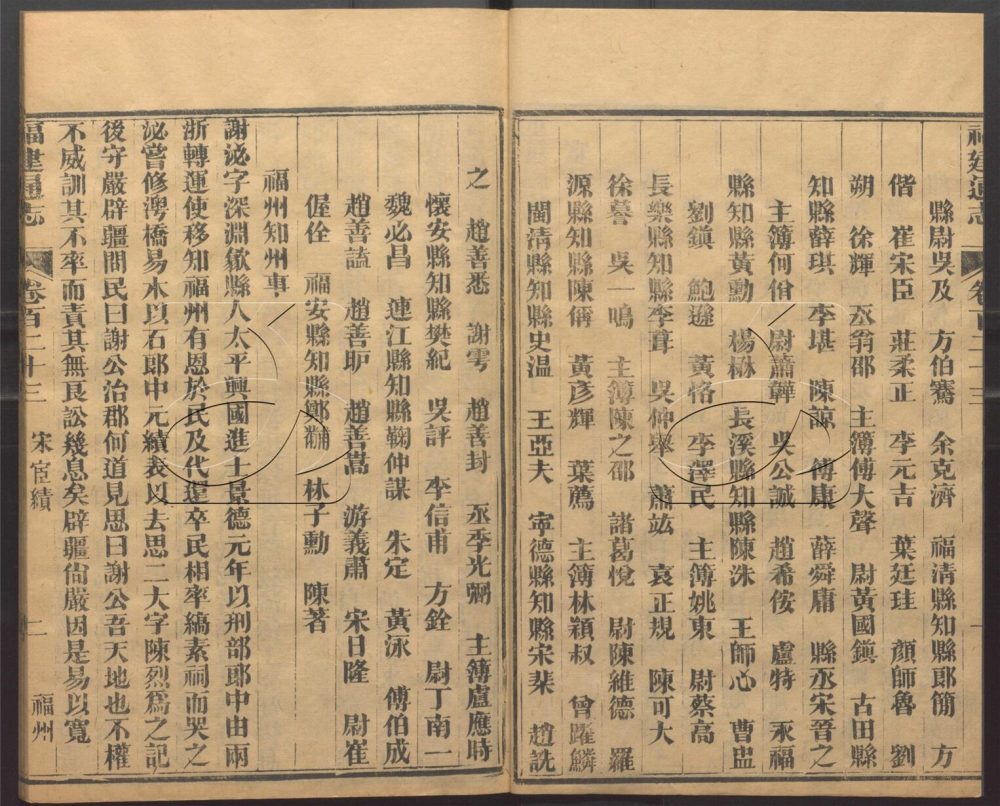 福建通志 卷百二十三 一
縣尉吳及 方伯騫 余克濟 福清縣知縣郎簡 方
偕 崔宋臣 莊柔正 李元吉 葉廷珪 顏師魯 劉
朔 徐輝 丞翁邵 主簿傅大聲 尉黃國鎮 古田縣
知縣薛琪 李堪 陳諒 傅康 薛舜庸 縣丞宋晉之
主簿何偕 尉蕭韡 吳公誠 趙希侒 盧特 永福
縣知縣黃勳 楊 長溪縣知縣陳洙 王師心 曹盅
劉鎮 鮑遜 黃恪 李澤民 主簿姚東 尉蔡高
長樂縣知縣李茸 吳仲舉 蕭竑 袁正規 陳可大
徐謩 吳一鳴 主簿陳之邵 諸葛悅 尉陳維德 羅
源縣知縣陳偁 黃彥輝 葉薦 主簿林穎叔 曾躍鱗
閩清縣知縣史温 王亞夫 寧德縣知縣宋棐 趙詵
之 趙善悉 謝雩 趙善封 丞季光弼 主簿盧應時
懷安縣知縣樊紀 吳評 李信甫 方銓 尉丁南一
魏必昌 連江縣知縣鞠仲謀 朱定 黃泳 傅伯成
趙善謐 趙善馿 趙善蒿 游義肅 宋日隆 尉崔
偓佺 福安縣知縣鄭黼 林子勳 陳著
福州知州事
謝泌字深淵歙縣人太平興國進士景德元年以刑部郎中由兩
浙轉運使移知福州有恩於民及代還卒民相率縞素祠而哭之
泌嘗修灣橋易木以石郎中元績表以去思二大字陳烈爲之記
後守嚴辟疆問民曰謝公治郡何道見思曰謝公吾天地也不權
不威訓其不率而責其無良訟幾息矣辟疆尙嚴因是易以寬
福建通志 卷百二十三 宋宦績 二 福州